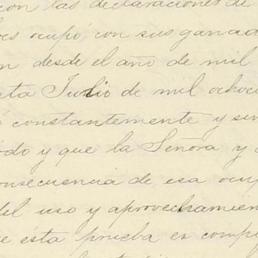 con las declaraciones de
ocupó, con sus ganad
n desde el año de mil
Julio de mil ochoc
constantemente y sin
odo y que la Señora y
onsecuencia de esa ocup
del uso y aprovechamien
e esta prueba es comp